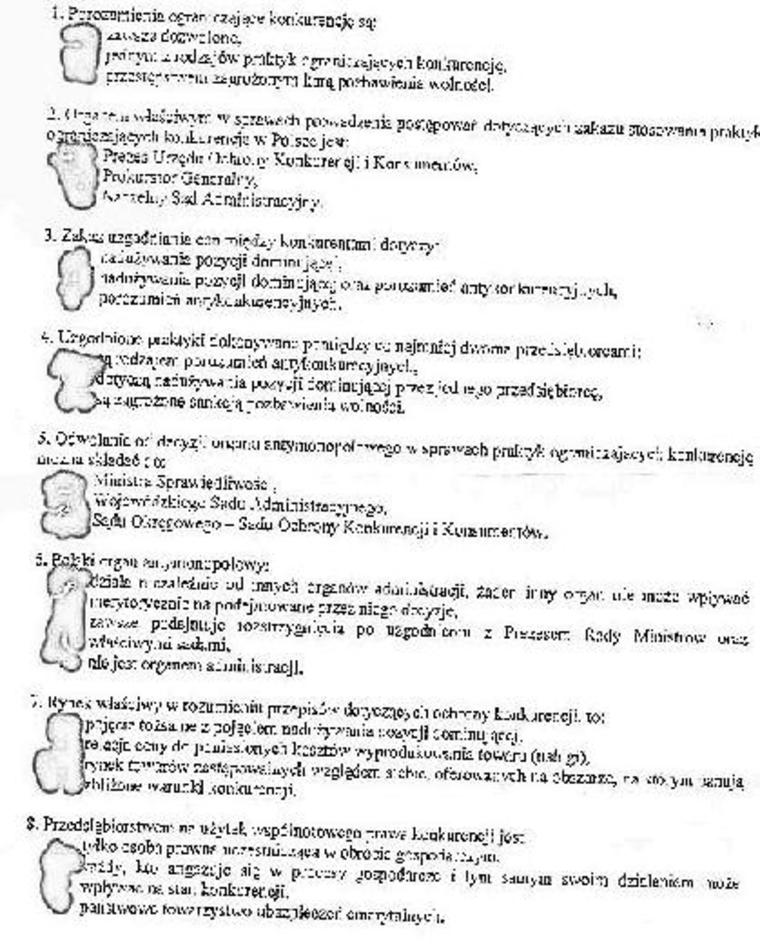 1. Porozumienia ograniczające konkurencję są:
zawsze dozwolone,
jednym z rodzajów praktyk ograniczających konkurencję,
przestępstwem zagrożonym karą pozbawienia wolności.
2. Organem właściwym w sprawach prowadzenia postępowań dotyczących zakazu stosowania praktyk
ograniczających konkurencję w Polsce jest:
Prezes Urzędu Ochrony Konkurencji i Konsumentów,
Prokurator Generalny,
Naczelny Sąd Administracyjny.
3. Zakaz uzgadniania cen między konkurentami dotyczy:
nadużywania pozycji dominującej,
nadużywania pozycji dominującej oraz porozumień antykonkurencyjnych,
porozumień antykonkurencyjnych.
4. Uzgodnione praktyki dokonywane pomiędzy co najmniej dwoma przedsiębiorcami:
są rodzajem porozumień antykonkurencyjnych,
dotyczą nadużywania pozycji dominującej przez jednego przedsiębiorcę,
są zagrożone sankcją pozbawienia wolności.
5. Odwołania od decyzji organu antymonopolowego w sprawach praktyk ograniczających konkurencję
można składać do:
Ministra Sprawiedliwości,
Wojewódzkiego Sądu Administracyjnego,
Sądu Okręgowego – Sądu Ochrony Konkurencji i Konsumentów.
6. Polski organ antymonopolowy:
działa niezależnie od innych organów administracji, żaden inny organ nie może wpływać
merytorycznie na podejmowane przez niego decyzje,
zawsze podejmuje rozstrzygnięcia po uzgodnieniu z Prezesem Rady Ministrów oraz
właściwymi sądami,
nie jest organem administracji.
7. Rynek właściwy w rozumieniu przepisów dotyczących ochrony konkurencji, to:
pojęcie tożsame z pojęciem nadużywania pozycji dominującej,
relacja ceny do poniesionych kosztów wyprodukowania towaru (usługi),
rynek towarów zastępowalnych względem siebie, oferowanych na obszarze, na którym panują
zbliżone warunki konkurencji.
8. Przedsiębiorstwem na użytek wspólnotowego prawa konkurencji jest:
tylko osoba prawna uczestnicząca w obrocie gospodarczym,
każdy, kto angażuje się w procesy gospodarcze i tym samym swoim działaniem może
wpływać na stan konkurencji,
państwowe towarzystwo ubezpieczeń emerytalnych.